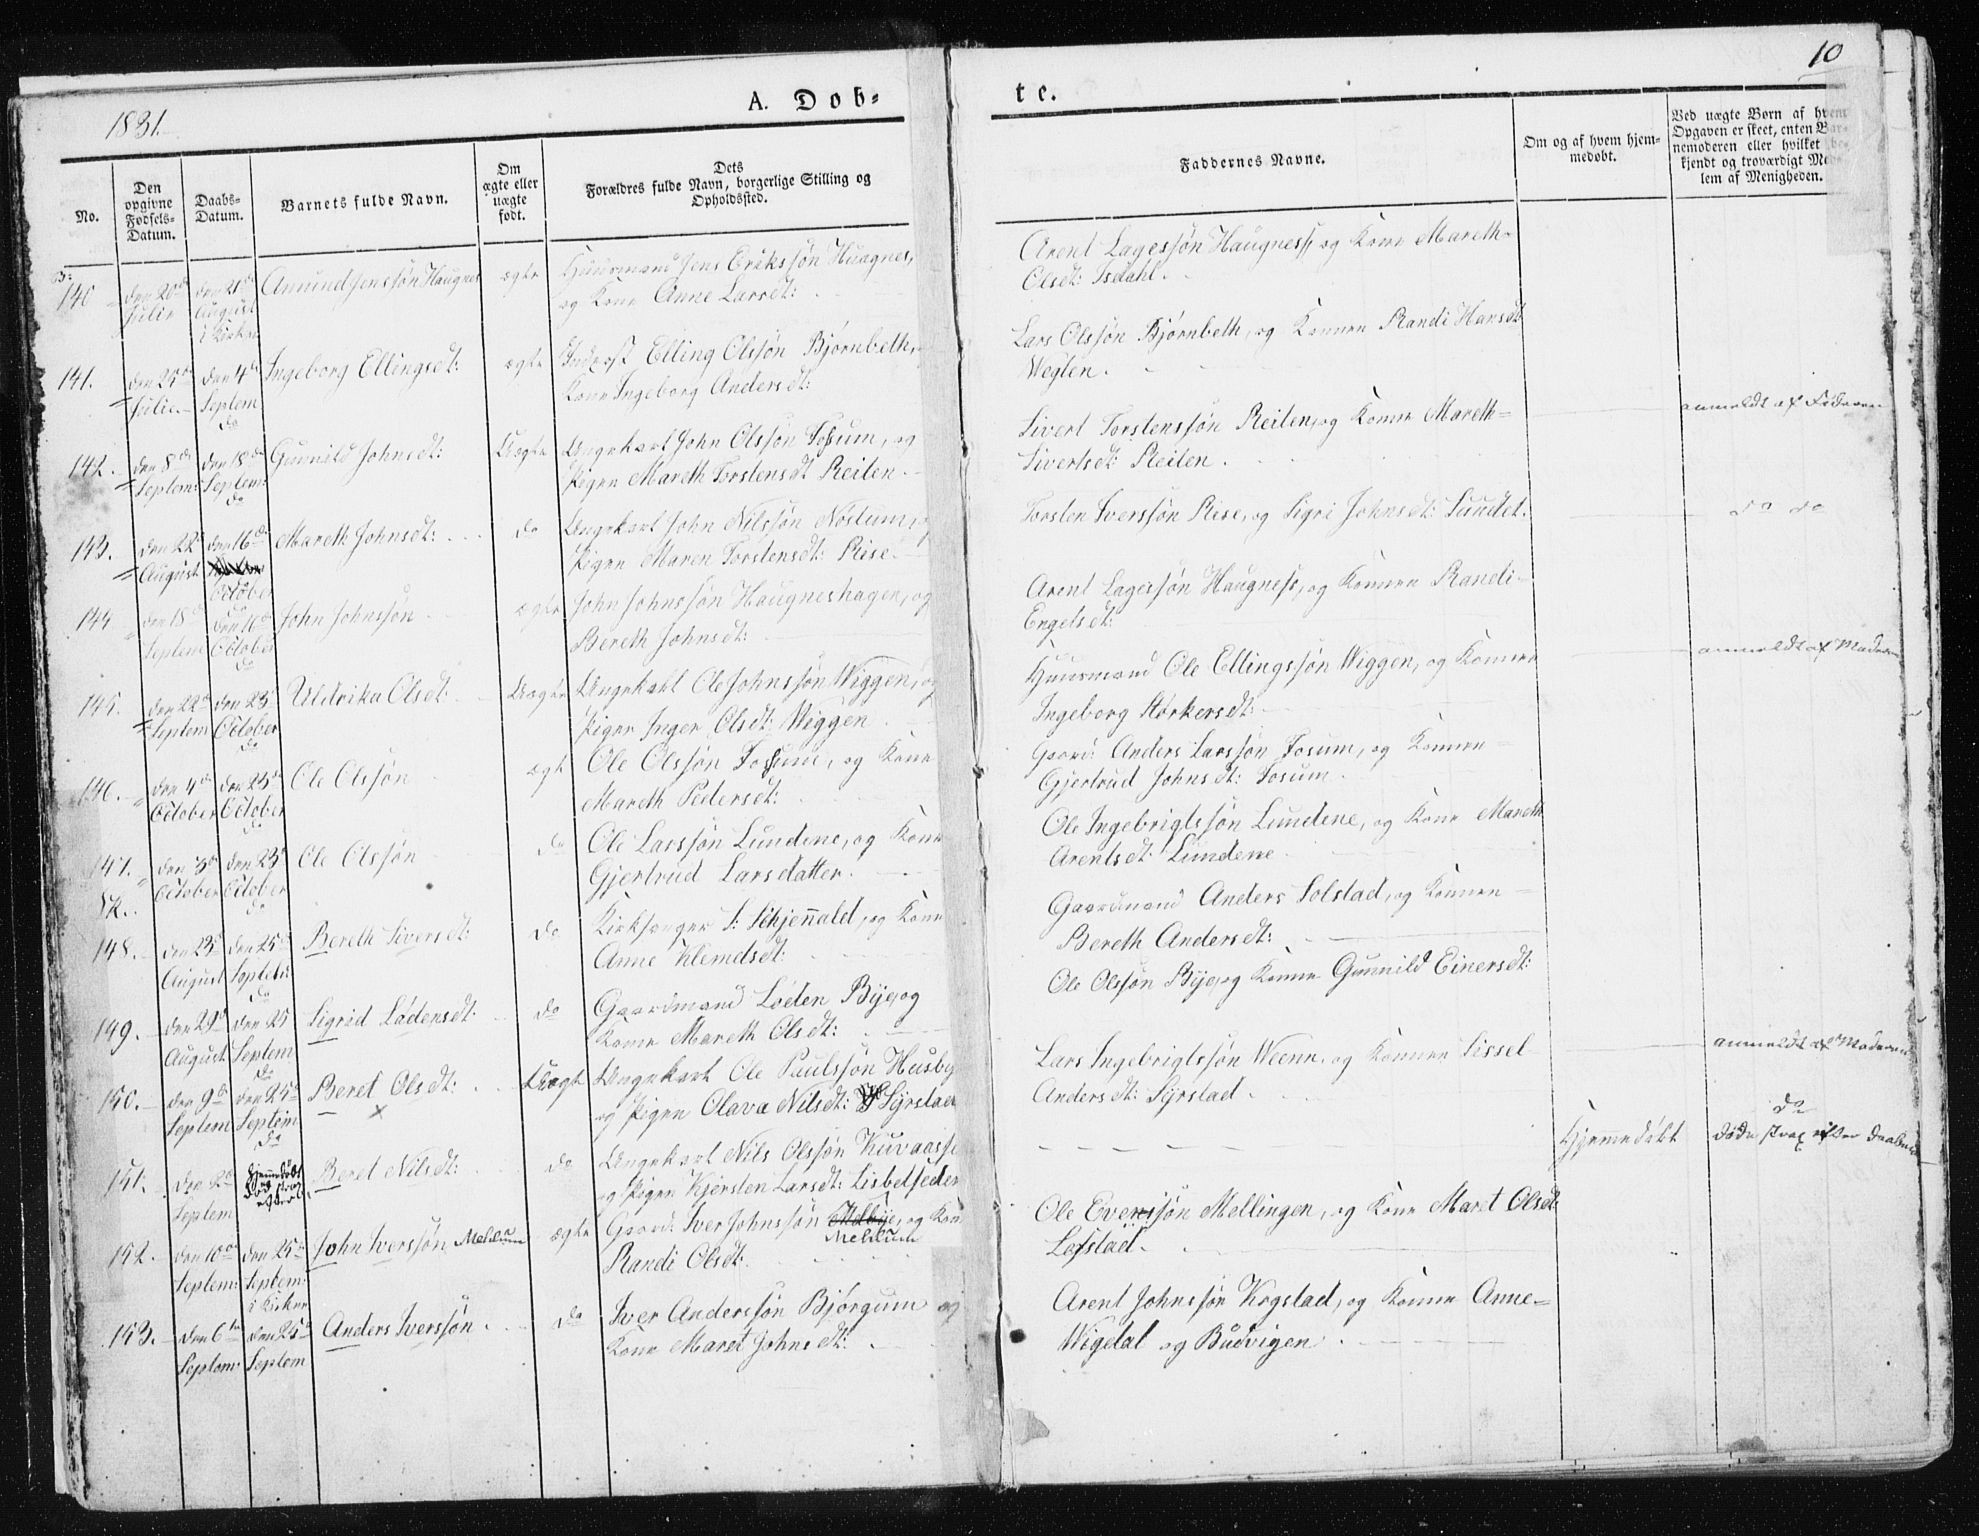 10
1831.
A. Døb-
te.
No.
Den opgivne Fødsels-Datum.
Daabs-Datum.
Barnets fulde Navn.
Om ægte eller uægte født.
Dets Forældres fulde Navn, borgerlige Stilling og Opholdssted.
Faddernes Navne.
Om og af hvem hjem-medøbt.
Ved uægte Børn af hvem Opgaven er skeet, enten Bar-nemoderen eller hvilket be-kjendt og troværdigt Med-lem af Menigheden.
140 den 20de Julie den 21de August i Kirken Amund Jenssøn Haugnes ægte Huusmand Jens Erikssøn Haugnes,
og Kone Anne Larsdt:
Arent Lagessøn Haugness og Kone Mareth
Olsdt: Isdahl.
141. den 25de Julie den 4de Septem do Ingeborg Ellingsdt: ægte Elling Olssøn Bjørnbeth,
Kone Ingeborg Andersdt:
Lars Olssøn Bjørnbeth, og Konen Randi Hansdt
Weglen.
142. den 8de Septem: den 18de Septem: do Gunnild Johnsdt: Uægte Ungekarl John Olssøn Fossum, og
Pigen Mareth Torstensdt Reiten.
Sivert Torstenssøn Reiten, og Konen Mareth
Sivertsdt: Reiten.
anmeldt af Faderen
143. den 22de August den 16de October do Mareth Johnsdt: do Ungekarl John Nilssøn Nostum, og
Pigen Maren Torstensdt: Riise.
Torsten Iverssøn Riise, og Sigri Johnsdt: Lundet.
do do
144 den 18de Septem den 16de October do John Johnssøn ægte John Johnssøn Haugneshagen, og
Bereth Johnsdt:
Arent Lagessøn Haugness, og Konen Randi
Engelsdt:
145. den 22de Septem den 23 October do Uldrika Olsdt: Uægte Ungekarl Ole Johnssøn Wiggen, og
Pigen Inger Olsdt: Wiggen.
Huusmand Ole Ellingssøn Wiggen, og Konen
Ingeborg Størkersdt:
anmeldt af Moderen
146. den 4de October den 23de October do Ole Olssøn ægte Ole Olssøn Fossum, og Kone
Mareth Pedersdt:
Gaard: Anders Larssøn Fosum, og Konen
Gjertrud Johnsdt: Fosum.
147. den 3de October den 23de October do Ole Olssøn do Ole Larssøn Lundene, og Kone
Gjertrud Larsdatter.
Ole Ingebrigtssøn Lundene, og Kone Mareth
Arentsdt: Lundene
148. den 23de August den 25de Septebr: do Bereth Siversdt: do Kirksanger S: Schjennald, og Kone
Anne Klemdsdt:
Gaardmand Anders Solstad, og Konen
Bereth Andersdt:
149. den 29de August den 25 Septem do Sigrid Lødensdt: do Gaardmand Løden Bye, og
Kone Mareth Olsdt:
Ole Olssøn Bye, og Konen Gunnild Einersdt:
150. den 9de Septem den 25de Septem do Beret Olsdt: Uægt Ungekarl Ole Paulssøn Husby
og Pigen Olava Nilsdt: Syrstad
Lars Ingebrigtssøn Weenn, og Konen Sissel
Andersdt: Syrstad.
anmeldt af Moderen
151. den 2de Septem hjemmedøbt og død strax efter Beret Nilsdt: do Ungekarl Nils Olssøn Kuvaas
og Pigen Kjersten Larsdt: Lisbetseder
Hjemmedøbt
do
døde strax efter Daaben
152. den 10de Septem: den 25de Septem: i Kirken John Iverssøn Meldum ægte Gaard: Iver Johnssøn Melbye, og Kone
Meldum
Randi Olsdt:
Ole Evenssøn Mellingen, og Kone Marit Olsdt
Lefstad.
153. den 6te Septem: den 25de Septem Anders Iverssøn. do Iver Anderssøn Bjørgum og
Kone Maret Johnsdt:
Arent Johnssøn Krogstad, og Konen Anne
Wigdal og Budvigen